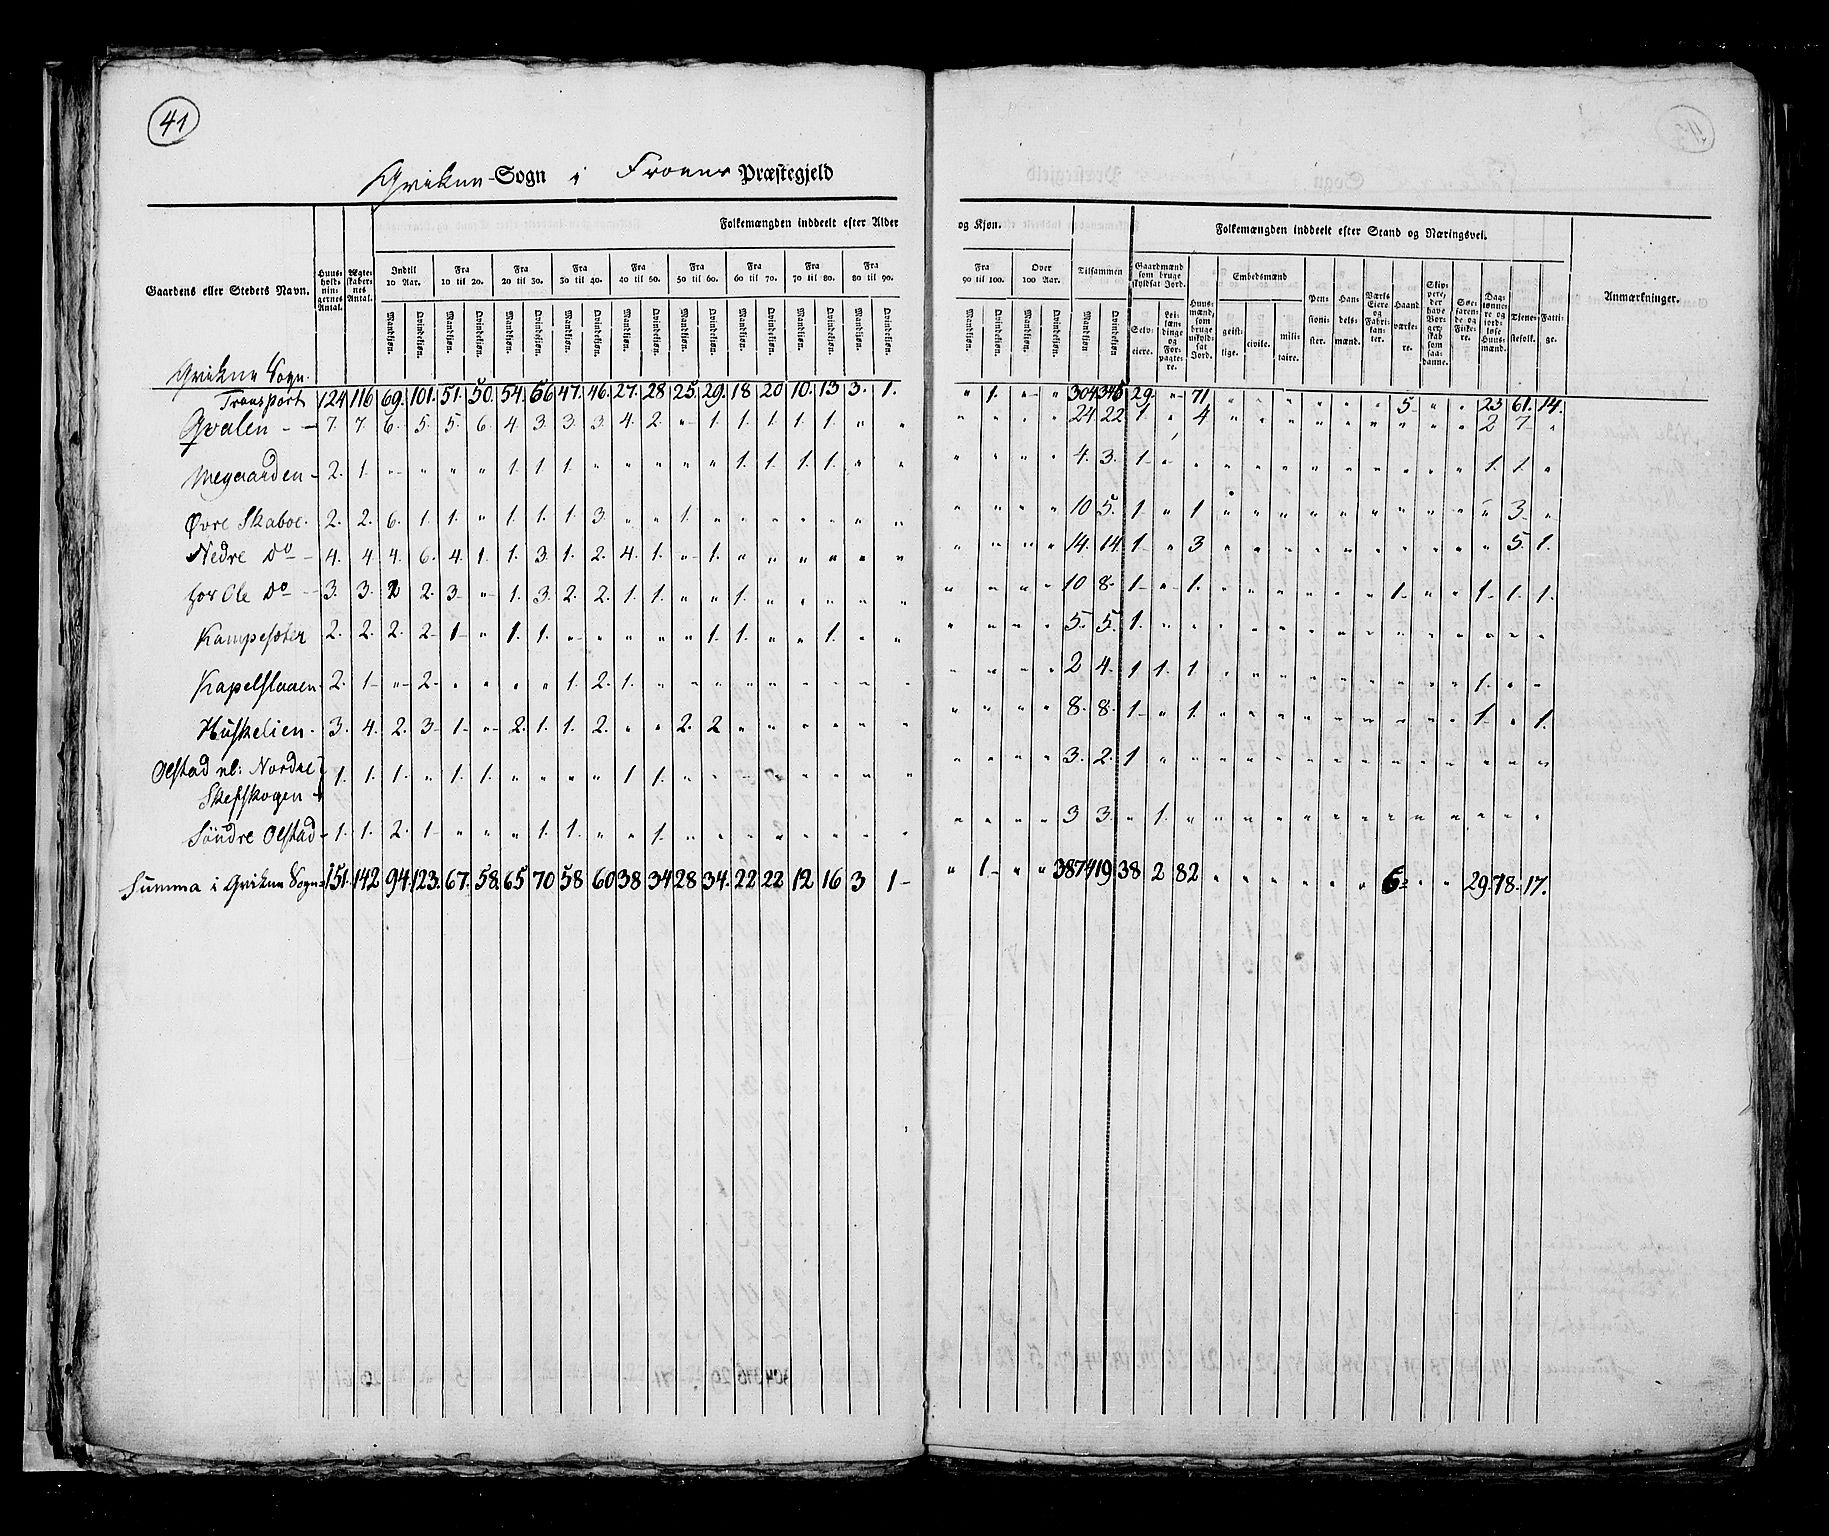 41
Qvikne Sogn i Froens Præstegjeld
Folkemængden inddeelt efter Alder og Kjøn. Folkemængden inddeelt efter Stand og Næringsvei.
Gaardens eller Stedets Navn. Huusholdningernes Antal. Ægteskabernes Antal. Indtil 10 Aar. Fra 10 til 20. Fra 20 til 30. Fra 30 til 40. Fra 40 til 50. Fra 50 til 60. Fra 60 til 70. Fra 70 til 80. Fra 80 til 90. Fra 90 til 100. Over 100 Aar. Tilsammen Gaardmænd som bruge skyldsat Jord. Huusmænd, som bruge uskyldsat Jord. Embedsmænd Pensionister. Handelsmænd. Værks Eiere og Fabrikanter. Haandværkere. Skippere, der have Borgerskab som saadanne. Søefarende og Fiskere. Daglønnere og jordløse Huusmænd. Tjenestefolk. Fattige. Anmærkninger.
Mandkjøn. Qvindekjøn. Mandkjøn. Qvindekjøn. Mandkjøn. Qvindekjøn. Mandkjøn. Qvindekjøn. Mandkjøn. Qvindekjøn. Mandkjøn. Qvindekjøn. Mandkjøn. Qvindekjøn. Mandkjøn. Qvindekjøn. Mandkjøn. Qvindekjøn. Mandkjøn. Qvindekjøn. Mandkjøn. Qvindekjøn. Mandkjøn Qvindekjøn Selveiere. Leilændinge og Forpagtere. geistlige. civile. militaire.
Qvikne Sogn.
Transport 124 116 69. 101. 51. 50. 54. 56 47. 46. 27. 28 25. 29. 18 20 10. 13 3. 1. " 1. " " 304 346 29. " 71 " " " " " " 5 " " 23 61. 14.
Qvalen - - 7. 7. 6. 5. 5. 6. 4. 3. 3. 3. 4. 2. " 1. 1. 1. 1. 1. " " " " " " 24 22 1. " 4 " " " " " " " " " 2 7 "
Megaarden - 2. 1. " " " " 1. 1. 1. " " " " " 1. 1. 1. 1. " " " " " " 4. 3. 1 " " " " " " " " " " " 1. 1. "
Øvre Skaboe. 2. 2. 6. 1. 1. " 1. 1. 1. 3 " " 1. " " " " " " " " " " " 10 5. 1. " 1 " " " " " " " " " " 3 "
Nedre Do - 4. 4 4. 6. 4. 1. 1. 3. 1. 2. 4. 1. " 1. " " " " " " " " " " 14. 14. 1. " 3 " " " " " " " " " " 5. 1.
for Ole Do - 3. 3. 2 2. 3. " 1. 3. 2. 2. 1. 1. " " 1. " " " " " " " " " 10 8. 1. " 1. " " " " " " 1. " " 1. 1. 1.
Kampesæter 2. 2. 2. 2. 1 " 1. 1. " " " " " 1. 1. " " 1. " " " " " " 5. 5. 1. " " " " " " " " " " " " " "
Kapelslaaen. 2. 1 " 2. " " " " 1. 2. 1. " " " " " " " " " " " " " 2 4. 1 1. 1 " " " " " " " " " 1. " "
Huskelien. 3. 4. 2. 3 1 " 2. 1. 1. 2. " " 2. 2 " " " " " " " " " " 8. 8. 1 " 1. " " " " " " " " " 1. " 1.
Olstad nl: Nordre
Skefskogen - 1. 1. 1. " 1. 1. " " " " 1. 1. " " " " " " " " " " " " 3. 2. 1 " " " " " " " " " " " " " "
Søndre Olstad - 1. 1. 2. 1 " " " 1. 1. " " 1. " " " " " " " " " " " " 3 3. " 1. " " " " " " " " " " " " "
Summa i Qvikne Sogn 151. 142 94. 123. 67. 58. 65 70 58 60 38 34 28 34. 22 22 12 16 3 1 " 1 " " 387 419 38 2 82 " " " " " " 6 " " 29. 78. 17.